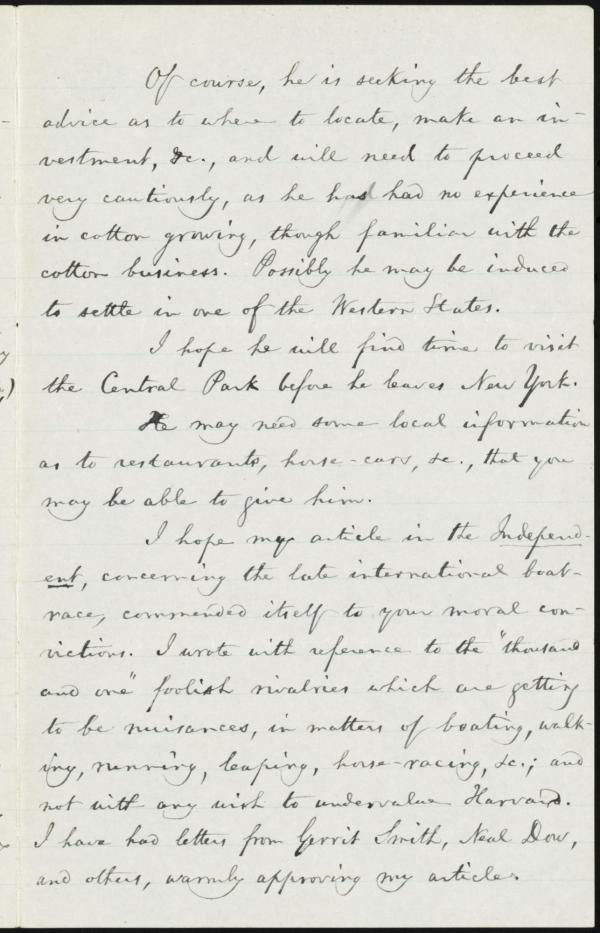 Of course, he is seeking the best
advice as to where to locate, make an in-
vestment, &c., and will need to proceed
very cautiously, as he has had no experience
in cotton growing, though familiar with the
cotton business. Possibly he may be induced
to settle in one of the Western States.
I hope he will find time to visit
the Central Park before he leaves New York.
He may need some local information
as to restaurants, horse-cars, &c., that you
may be able to give him.
I hope my article in the Independ-
ent, concerning the late international boat-
race, commended itself to your moral con-
victions. I wrote with reference to the "thousand
and one" foolish rivalries which are getting
to be nuisances, in matters of boating, walk-
ing, running, leaping, horse-racing, &c.; and
not with any wish to undervalue Harvard.
I have had letters from Gerrit Smith, Neal Dow,
and others, warmly approving my article.